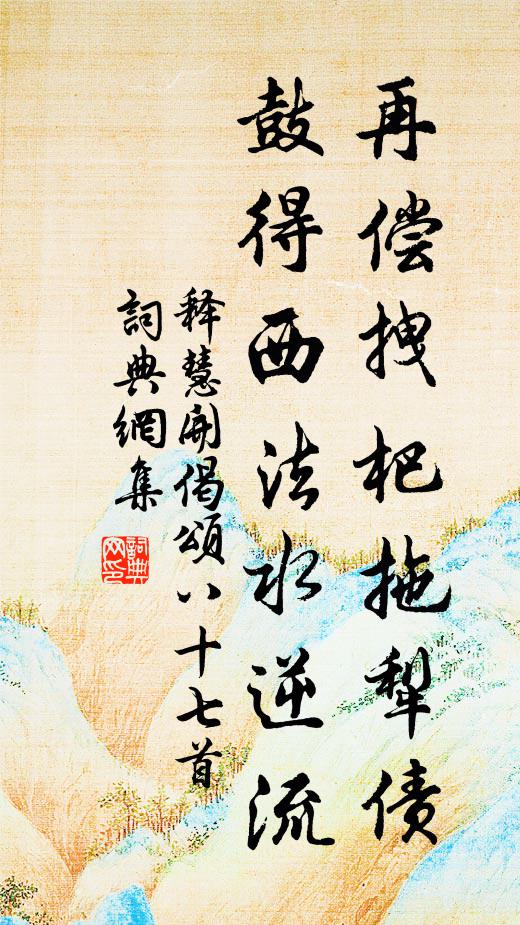 再偿拽杷拖犁债
鼓得西法水逆流
释慧開偈頌八十七首
詞典網集
詞典网印